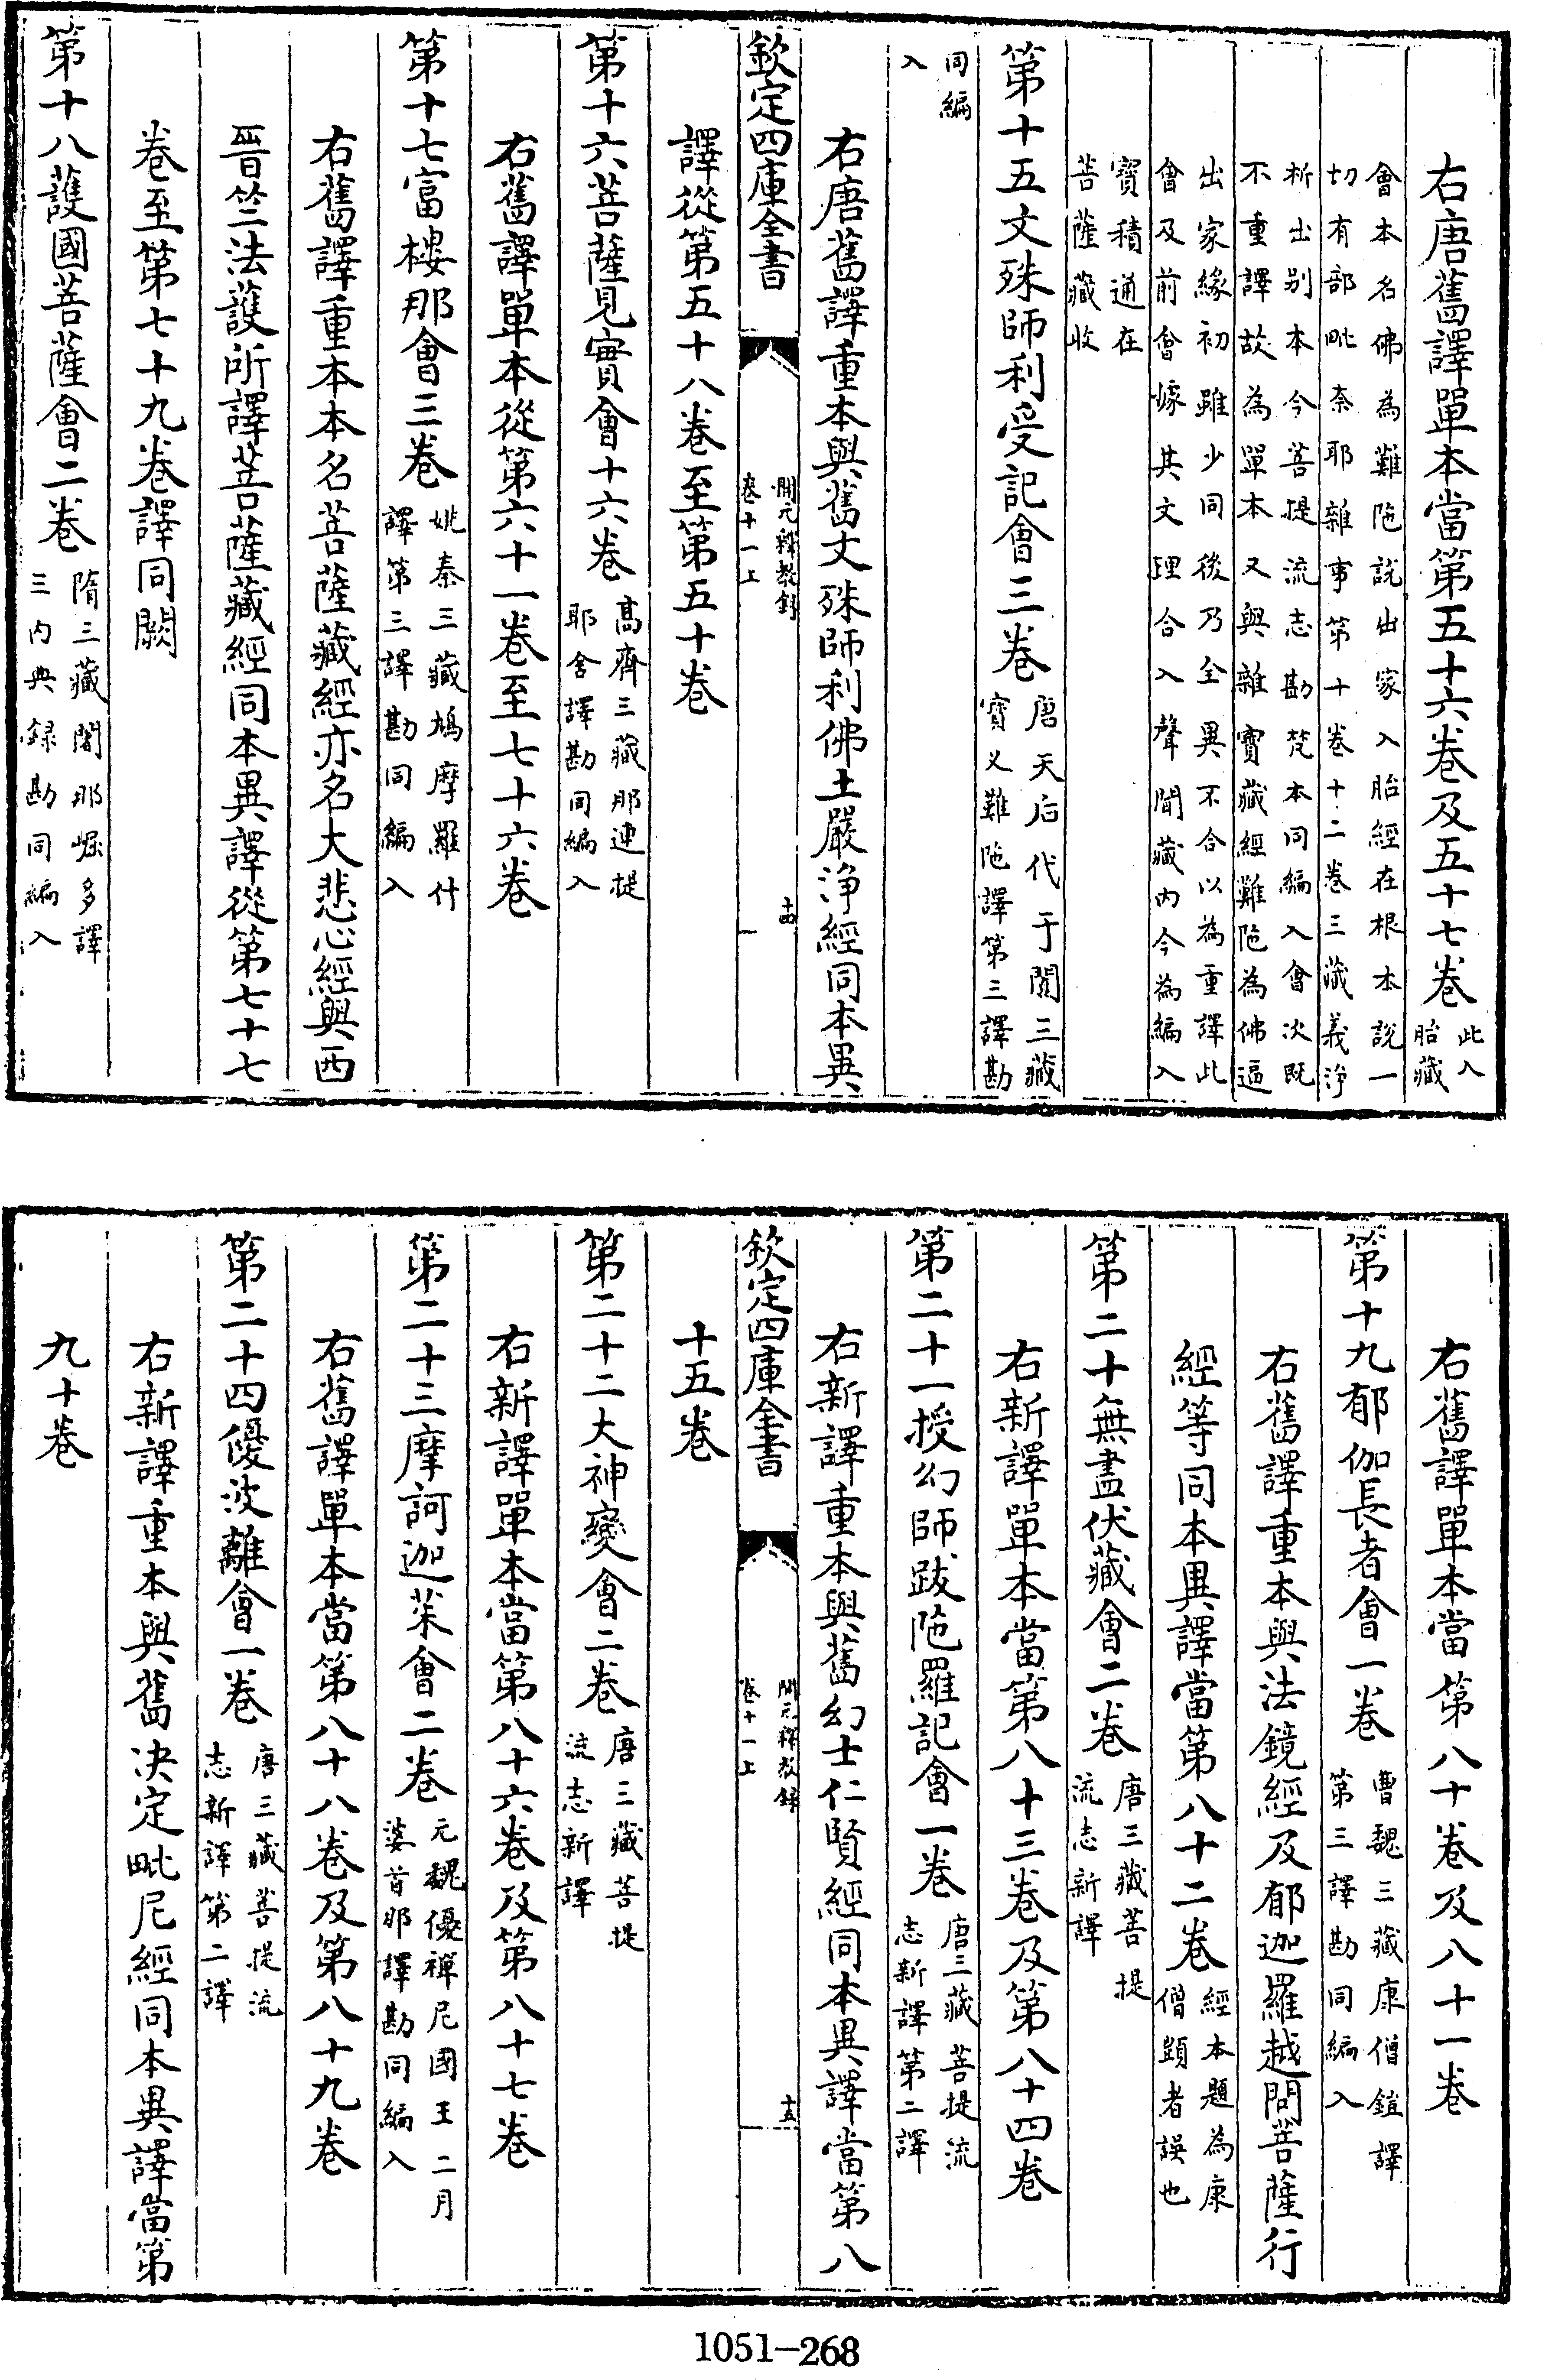 右唐舊譯單本當第五十六卷及五十七卷此入胎藏
會本名佛為難陁說出家入胎經在根本說一
切有部毗奈耶雜事第十一卷十二卷三藏義淨
析出别本今菩提流志勘梵本同編入會次既
不重譯故為單本又與雜寶藏經難陁為佛逼
出家緣初雖少同後乃全異不合以為重譯此
會及前會據其文理合入聲聞藏内今為編入
寶積通在
菩薩藏收
第十五文殊師利受記會三卷唐天后代于闐三藏
寶义難陁譯第三譯勘
同編
入
右唐舊譯重本與舊文殊師利佛土嚴浄經同本異
欽定四庫全書
開元釋教録
卷十一上
十四
譯從第五十八卷至第五十卷
第十六菩薩見實會十六卷高齊三藏那連提
耶舍譯勘同編入
右舊譯單本從第六十一卷至七十六卷
第十七富樓那會三卷姚秦三藏鳩摩羅什
譯第三譯勘同編入
右舊譯重本本名菩薩藏經亦名大悲心經與西
晉竺法䕶所譯菩薩藏經同本異譯從第七十七
卷至第七十九卷譯同闕
第十八䕶國菩薩會二卷隋三藏闍那崛多譯
三内典録勘同編入
右舊譯單本當第八十卷及八十一卷
第十九郁伽長者會一卷曹魏三藏康僧鎧譯
第三譯勘同編入
右舊譯重本與法鏡經及郁迦羅越問菩薩行
經等同本異譯當第八十二卷經本題為康
僧顗者誤也
第二十無盡伏藏會二卷唐三藏菩提
流志新譯
右新譯單本當第八十三卷及第八十四卷
第二十一授幻師跋陁羅記會一卷唐三藏菩提流
志新譯第二譯
右新譯重本與舊幻士仁賢經同本異譯當第八
欽定四庫全書
開元釋教録
卷十一上
十五
十五卷
第二十二大神變會二卷唐三藏菩提
流志新譯
右新譯單本當第八十六卷及第八十七卷
第二十三摩訶迦葉會二卷元魏優禪尼國王二月
婆首那譯勘同編入
右舊譯單本當第八十八卷及第八十九卷
第二十四優波離會一卷唐三藏菩提流
志新譯第二譯
右新譯重本與舊决定毗尼經同本異譯當第
九十卷
1051-268